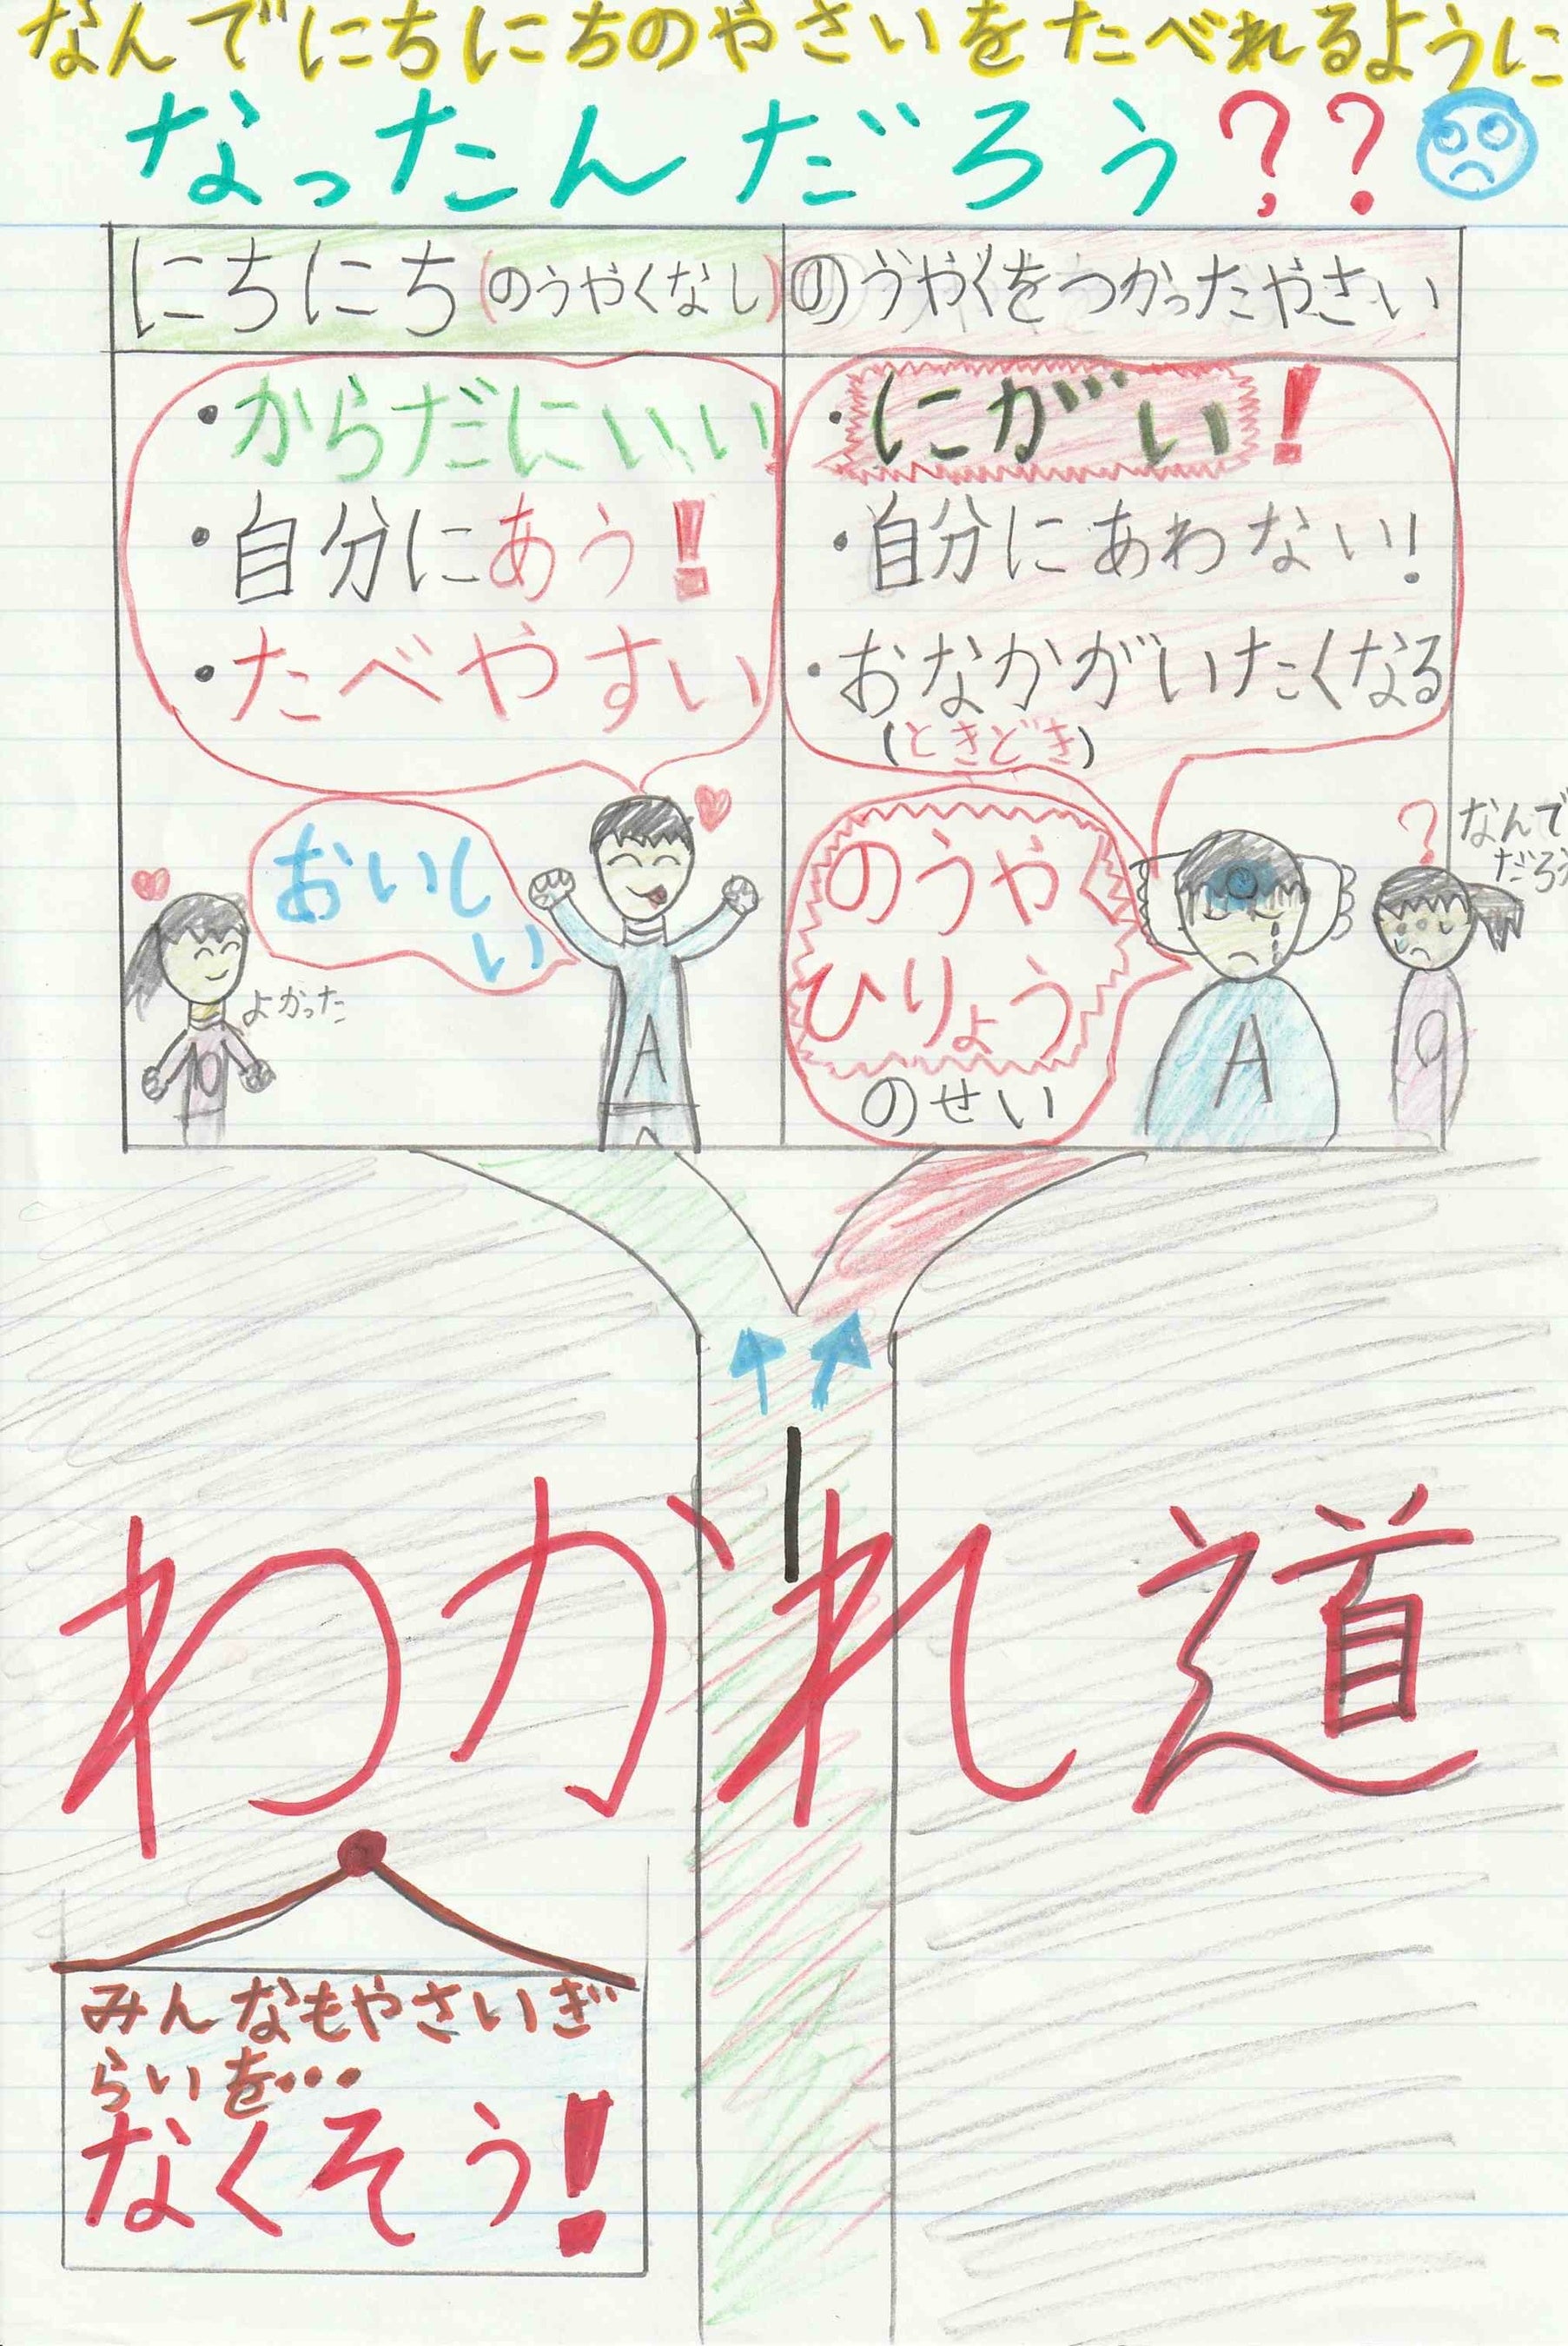 なんでにちにちのやさいをたべれるように
なったんだろう??
にちにち(のうやくなし)
のうやくをつかったやさい
・からだにいい
・自分にあう!
・たべやすい
・にがい!
・自分にあわない!
・おなかがいたくなる
(ときどき)
おいし
い
よかった
A
のうやく
ひりょう
のせい
A
?なんで
だろう
わかれ道
みんなもやさいぎ
らいを・・・
なくそう!